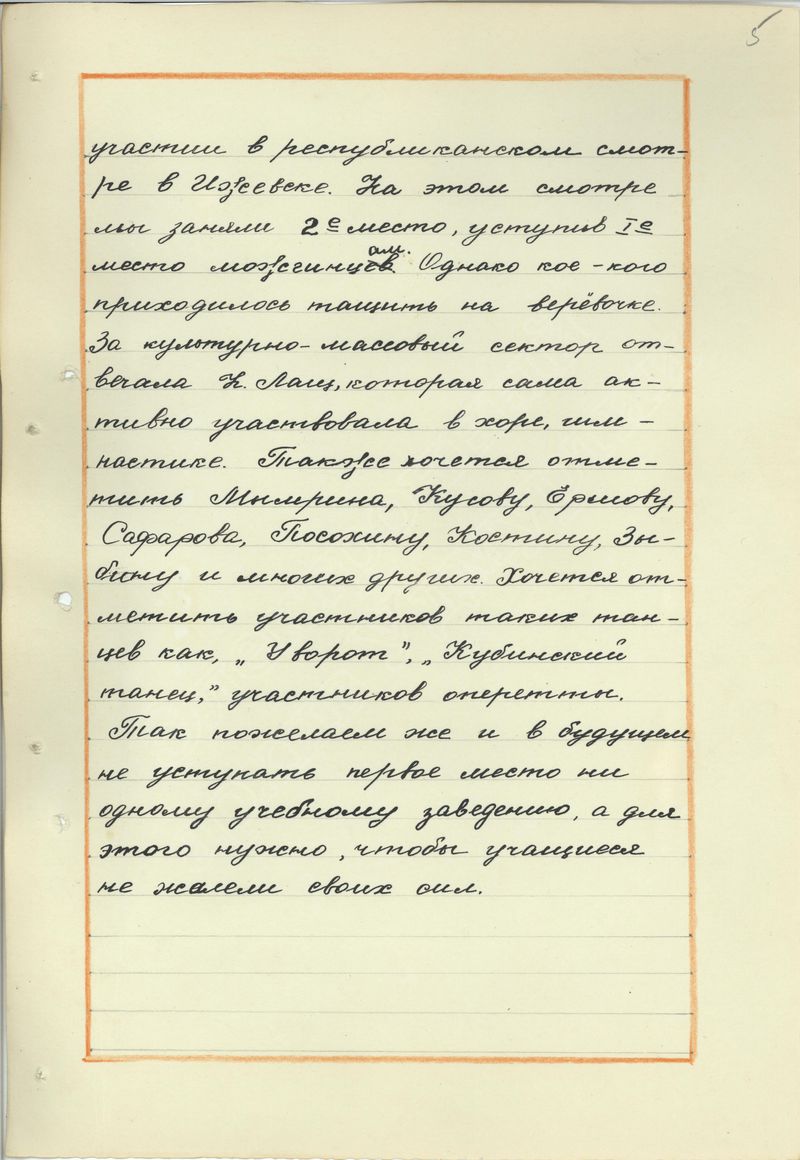 5
участии в республиканском смот-
ре в Ижевске. На этом смотре
мы заняли 2е место, уступив Iе
место можгинцам. Однако кое-кого
приходилось тащить на верёвочке.
За культурно-массовый сектор от-
вечала Н. Лащ, которая сама ак-
тивно участвовала в хоре, гим-
настике. Также хочется отме-
тить Мымрина, Кусову, Ёрмову,
Сафарова, Посохину, Костину, Зы-
бину и многих других. Хочется от-
метить участников таких тан-
цев как, „У ворот”, „Кубинский
танец,” участников оперетты.
Так пожелаем же и в будущем
не уступать первое место ни
одному учебному заведению, а для
этого нужно, чтобы учащиеся
не жалели своих сил.